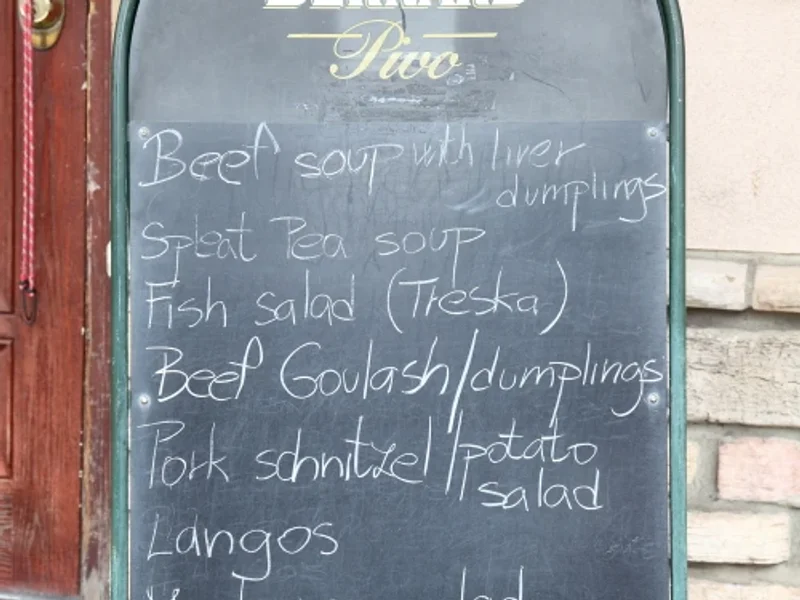 Pivo
Beef soup with liver
dumplings
Spleat Pea soup
Fish salad (Treska)
Beef Goulash/dumplings
Pork schnitzel/potato
salad
Langos